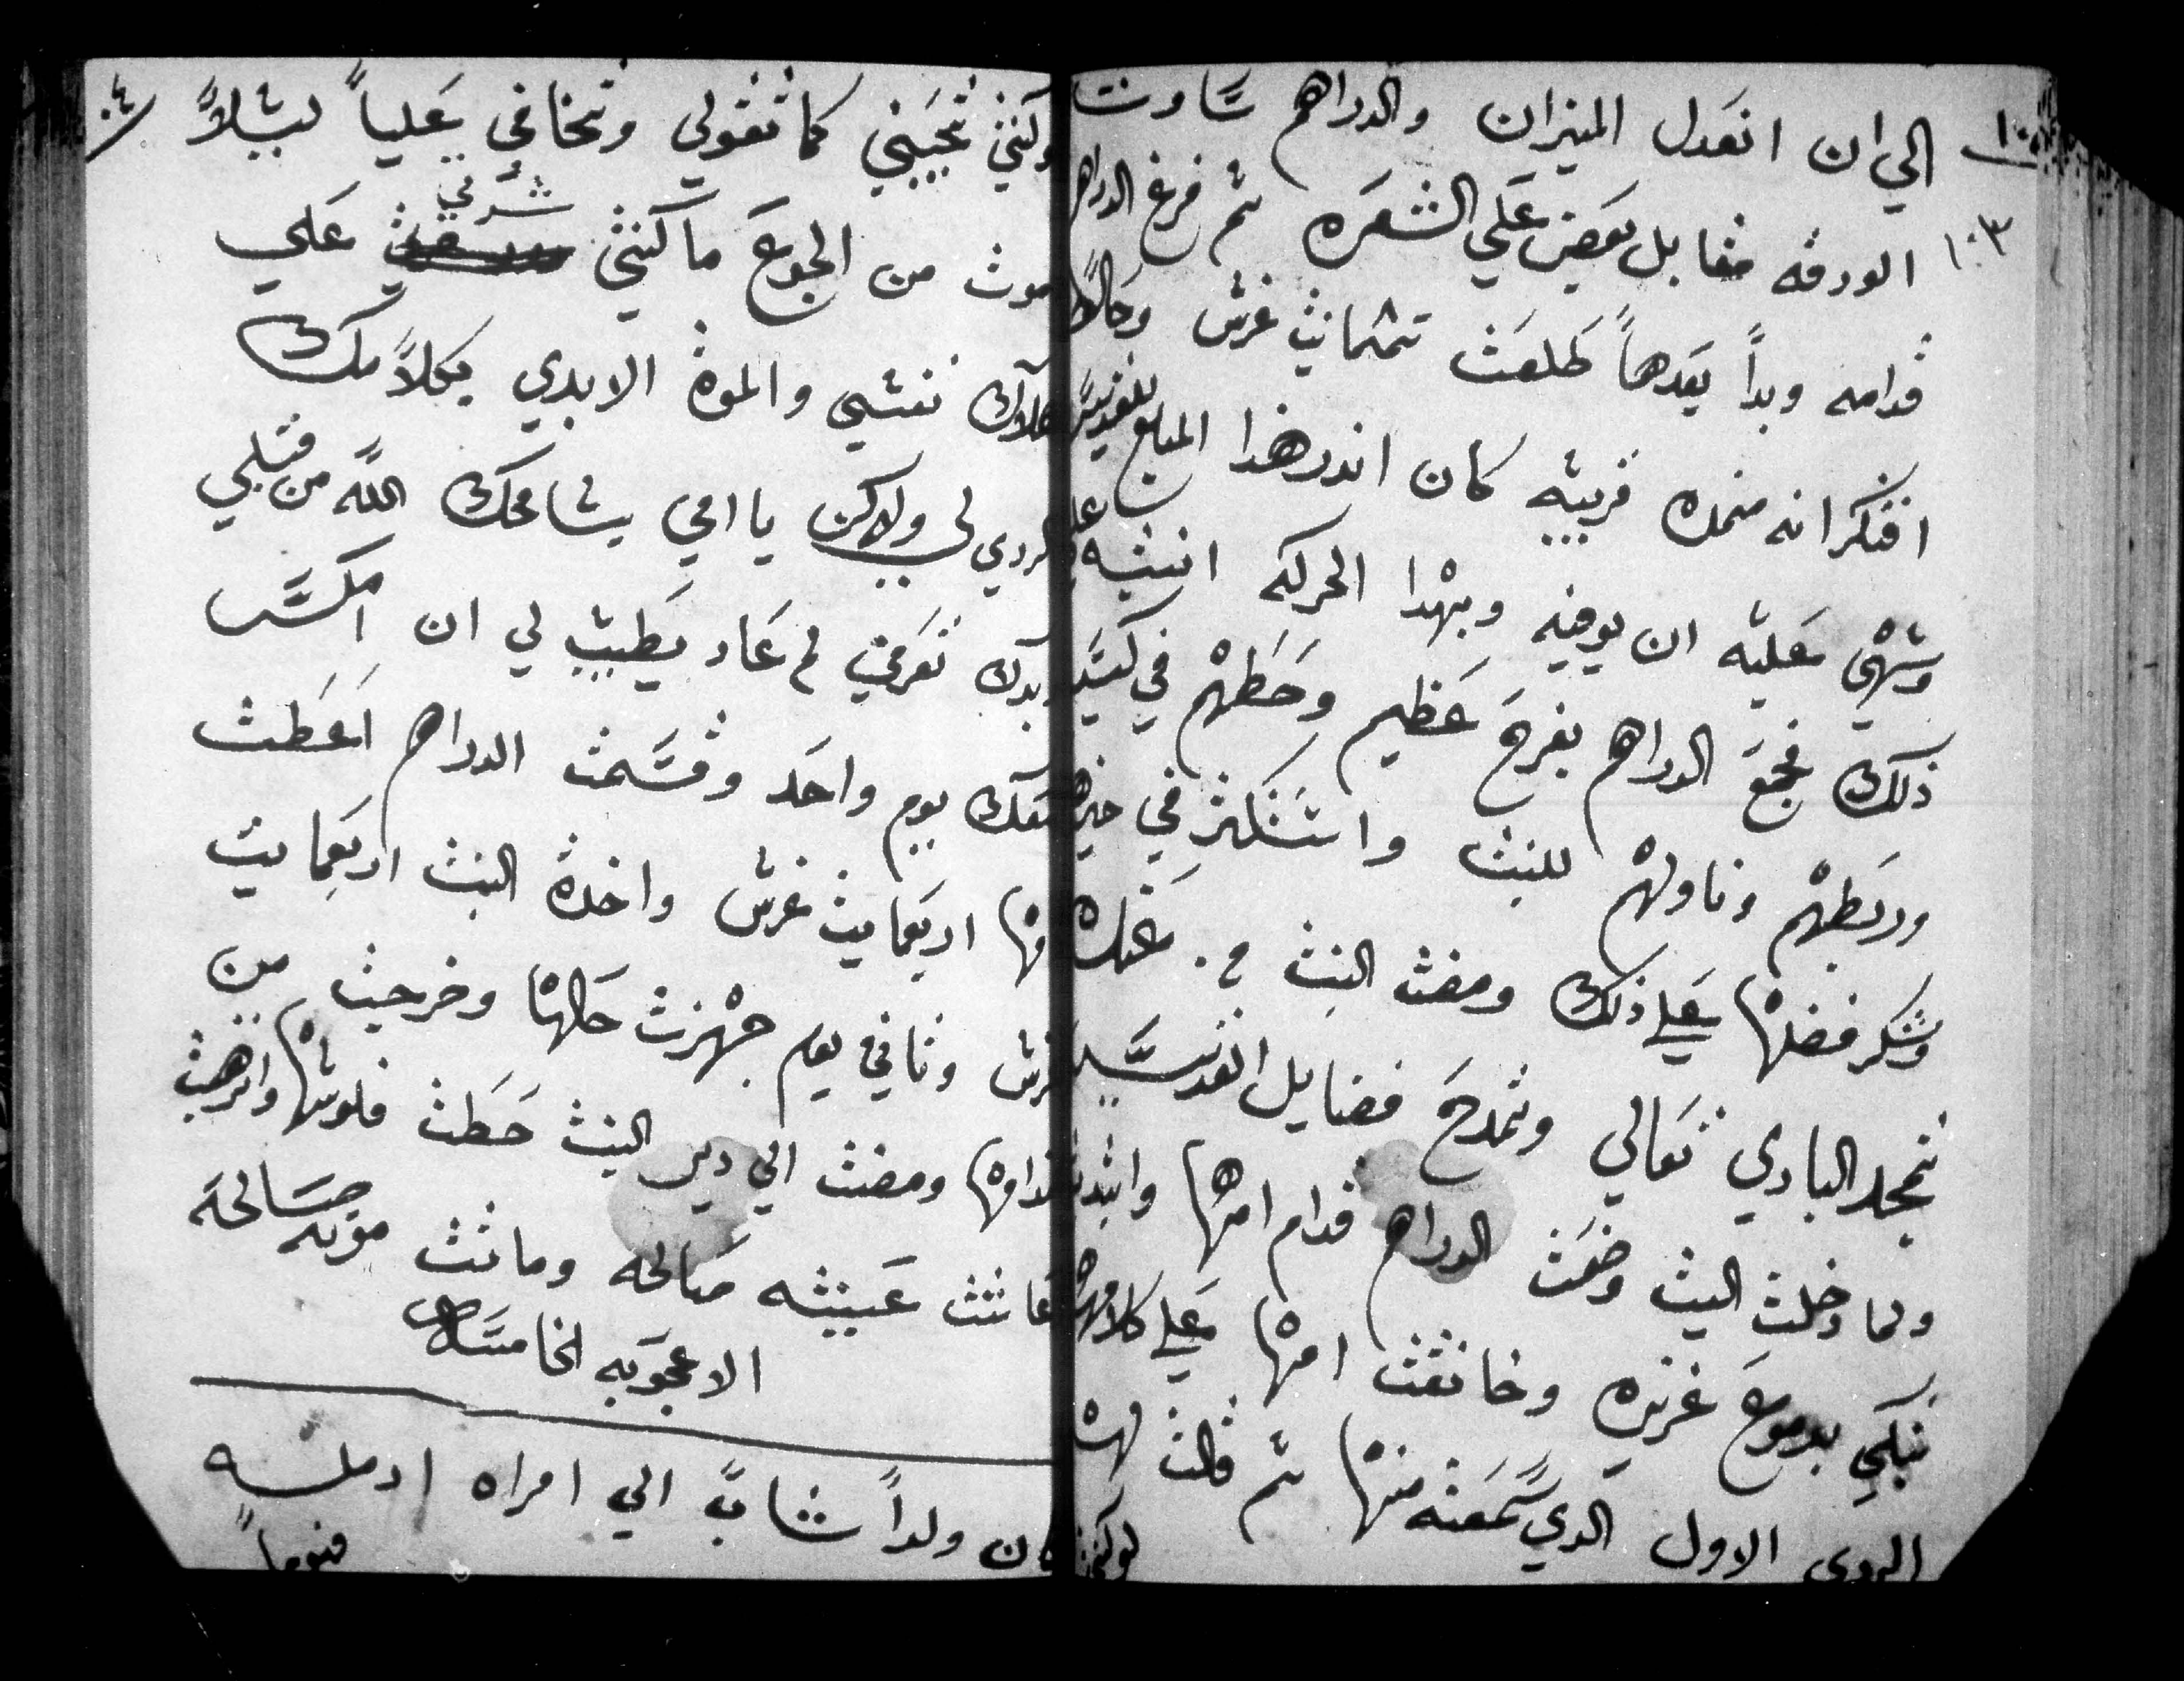 ١٠٣
الي ان انعدل الميزان والدراهم ساوت
الورقه مقابل بعض علي الشعره ثم فرغ الدراهم
قدامه وبدا يعدها طلعت تمنمايت غرش وحالاً
افتكر انه منمده قريبه كان اندر هذا المبلغ للقديس
وسُهي عليه ان يوفيه وبهدا الحركه انتبه علي
ذلك فجمع الدراهم بفرح عظيم وحطهم في كيس
وربطهم وناولهم للبنت واستكتر في خيرها
وشكر فضلها علي ذلك ومضت البنت من عنده
تمجد الباري تعالي وتمدح فضايل القديس
ولما دخلت البيت وضعت الدراهم قدام امها وابتدت
تبكي بدموع غزيره وخانقت امها علي كلامها
الردي الاول الدي سمعته منها ثم قالت لها
لوكنتي
١٠٤
لوكنتي تحبيني كما تقولي وتخافي عليا ليلا
اموت من الجوع ما كنتي شرتي علي
هلاك نفسي والموة الابدي بكلامك
الردي لي ولاكن يا امي يسامحك الله من قبلي
وبدك تعرفي لم عاد يطيب لي ان اسكن
معك يوم واحد وقسمت الدراهم اعطت
امها اربعمايت غرش واخدة البنت اربعمايت
غرش وثاني يوم جهزت حالها وخرجت من
قدامها ومضت الي دير البنت حطت فلوسها واترهبت
عاشت عيشه صالحه وماتت موته صالحه
الاعجوبه الخامسه
كان ولداً شاب الي امراه ارمله
فيوماً